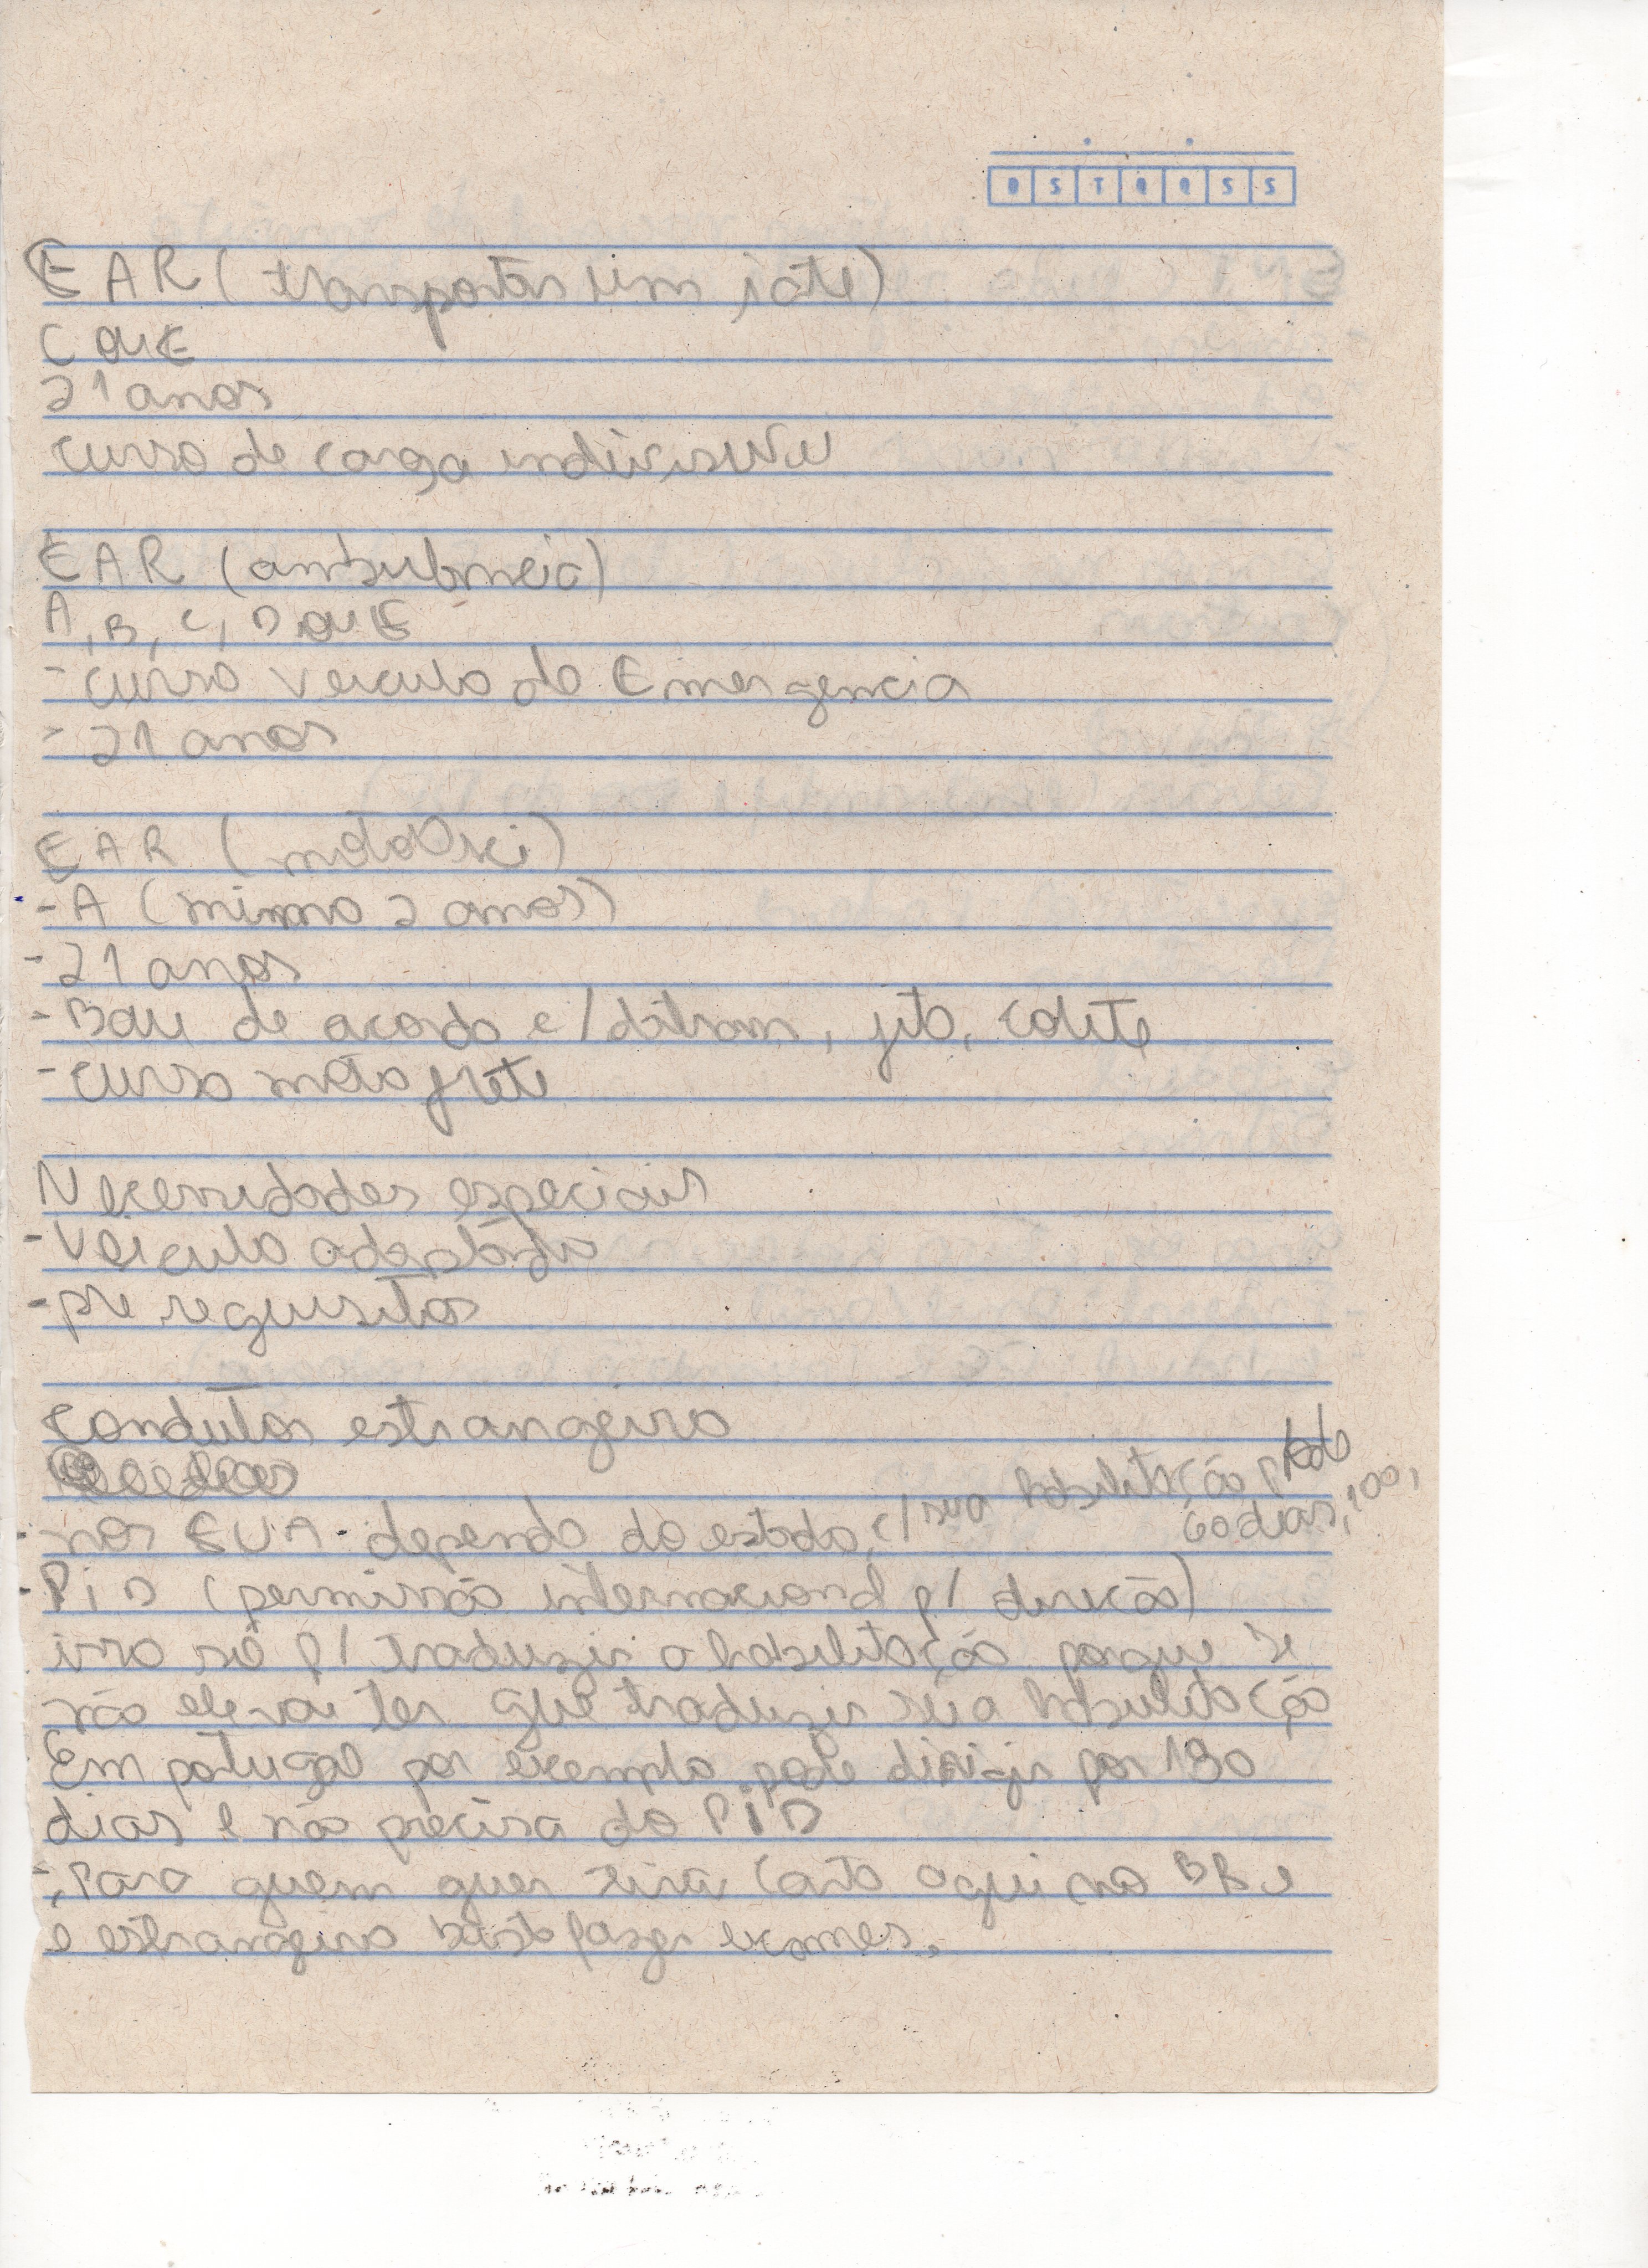 D S T Q Q S S
EAR (transportar um iate)
C ou E
21 anos
curso de carga indivisivel
EAR (ambulancia)
A, B, C, D ou E
- curso veiculo de Emergencia
- 21 anos
EAR (mototaxi)
- A (minmo 2 anos)
- 21 anos
- Bau de acordo c/ detran, colete
- curso moto frete
Necessidades especiais
- Veiculo adaptado
- pre requisitos
condutor estrangeiro
- nos EUA - depende do estado, c/ sua habilitação pode 60 dias, 100,
- PiD (permissão internacional p/ direção)
isso só p/ traduzir a habilitação porque se
não ele vai ter que traduzir sua habilitação
Em portugal por exemplo pode dirigir por 180
dias e não precisa do PiD
- Para quem quer tirar carta aqui no BR e
e estrangeiro exames.